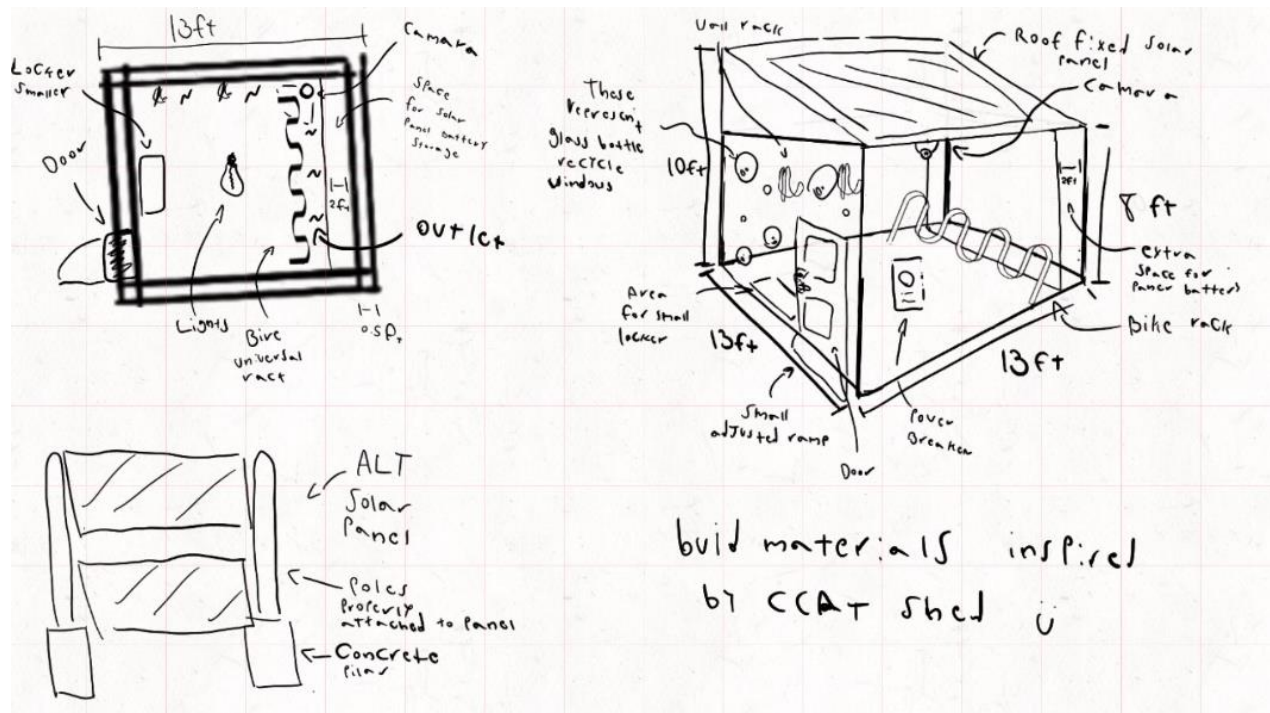 13ft
Locker
smaller
Door
Camara
Space
for Solar
Panel battery
Storage
2ft
OUTLET
Lights
Bike
universal
rack
0.5ft
Roof fixed Solar
panel
Camara
These
represent
glass bottle
recycle
windows
10ft
2ft
8ft
extra
Space for
Power battery
Bike rack
Area
for small
locker
13ft
13ft
Small
adjusted ramp
Door
Power
Breaker
ALT
Solar
Panel
Poles
Properly
attached to panel
Concrete
Pilar
build materials inspired
by CCAT Shed